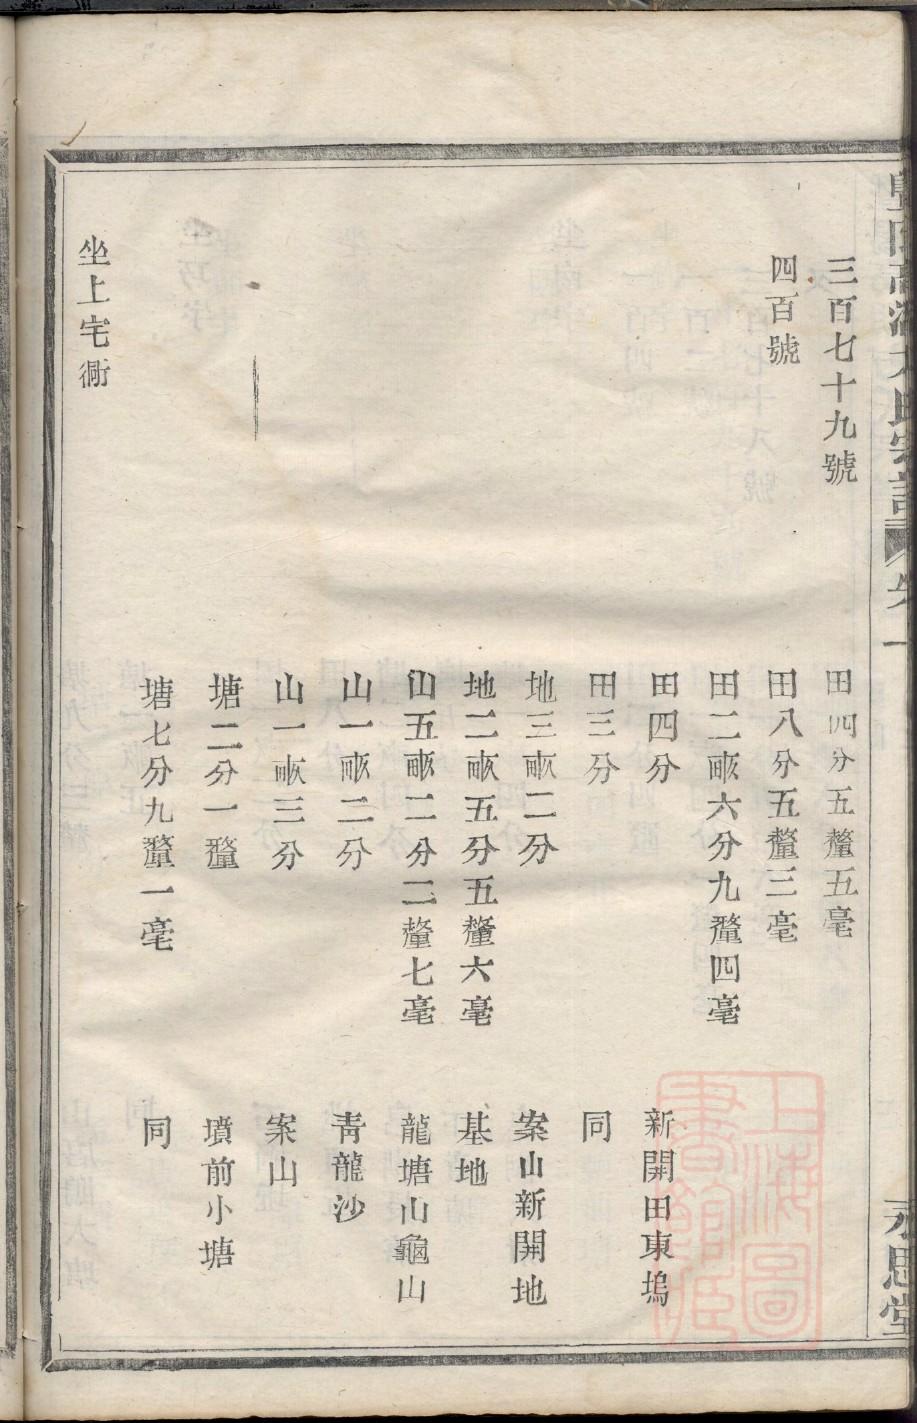 三百七十九號 田四分五釐五毫
四百號 田八分五釐三毫
田二畝六分九釐四毫
田四分 新開田東塢
田三分 同
地三畝二分 案山新開地
地二畝五分五釐六毫 基地
山五畝二分二釐七毫 龍塘山龜山
山一畝二分 青龍沙
山一畝三分 案山
塘二分一釐 墳前小塘
塘七分九釐一毫 同
坐上宅衕
卷一
永思堂
上海圖書館藏